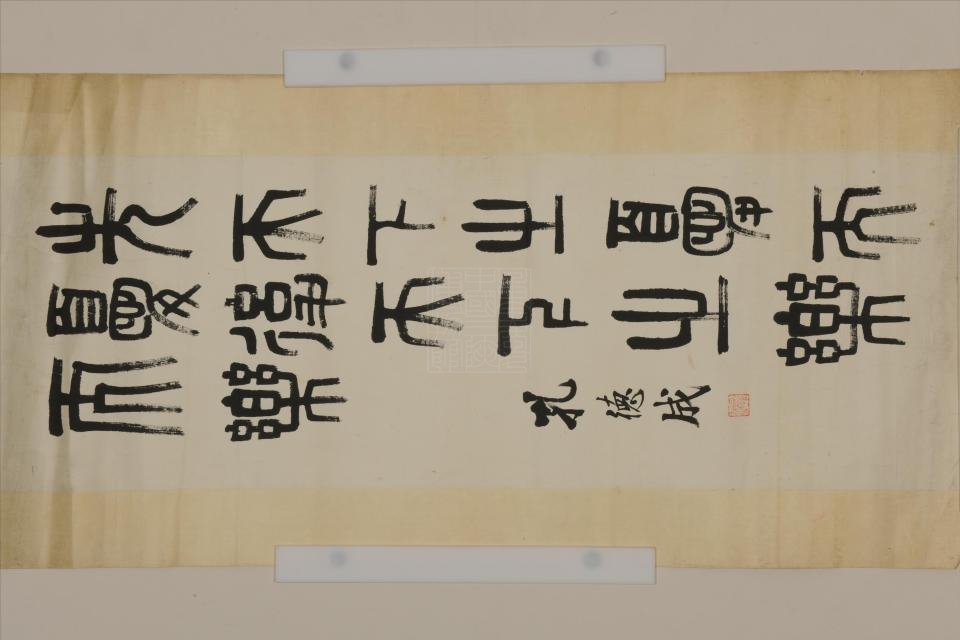 先天下之憂而
憂後天下之樂
而樂
孔德成